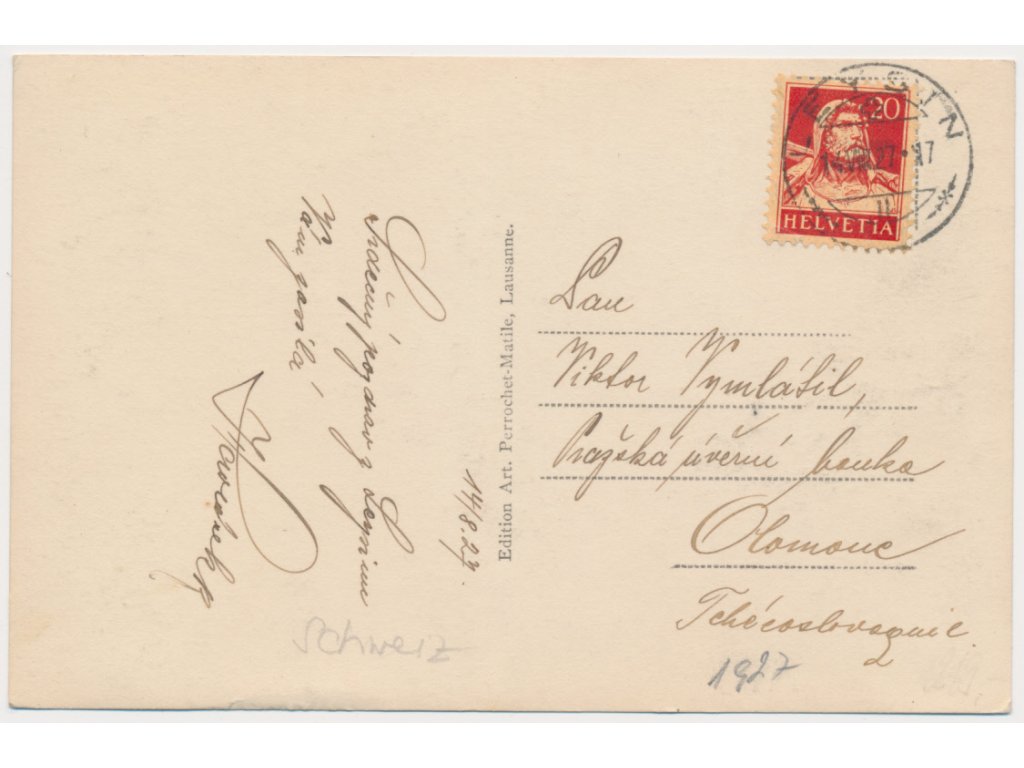 Srdečný pozdrav z Leysinu
Vám zasílá
14/8.27.
Edition Art. Perrochet-Matile, Lausanne.
20
HELVETIA
LEYSIN
14 VIII 27
Pan
Viktor Vymlátil,
Pražská úvěrní banka
Olomouc
Tchécoslovaquie
Schweiz
1927